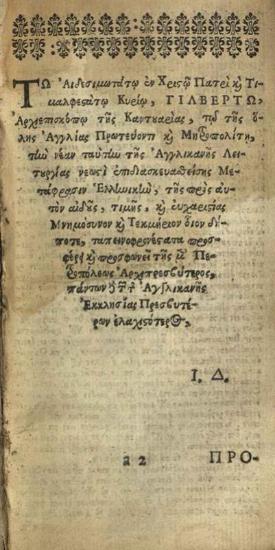 Τῷ Αἰδεσιμωτάτῳ ἐν Χριστῷ Πατρὶ κ̀ Τι-
μαλφεστάτῳ Κυρίῳ, ΓΙΛΒΕΡΤΩ,
Ἀρχιεπισκόπῳ τῆς Καντυαρίας, τῷ τῆς ὅ-
λης Ἀγγλίας Πρωτεύοντι κ̀ Μητροπολίτῃ,
τὴν νέαν ταύτην τῆς Ἀγγλικανῆς Λει-
τυργίας νεωστὶ ἐπιδιασκευασθείσης Με-
τάφρασιν Ἑλληνικὴν, τῆς πρὸς αὐ-
τὸν αἰδῦς, τιμῆς, κ̀ εὐχαριστίας
Μνημόσυνον κ̀ Τεκμήριον ὅιον δή-
ποτε, ταπεινοφρονέστατα προσ-
φέρει κ̀ προσφωνεῖ τῆς
Πε-
τροπόλεως Ἀρχιπρεσβύτερος,
πάντων
τ̃ Ἀγγλικανῆς
Ἐκκλησίας Πρεσβυτέ-
ρων ἐλαχιστότερος,
Ι. Δ.
a 2 ΠΡΟ-